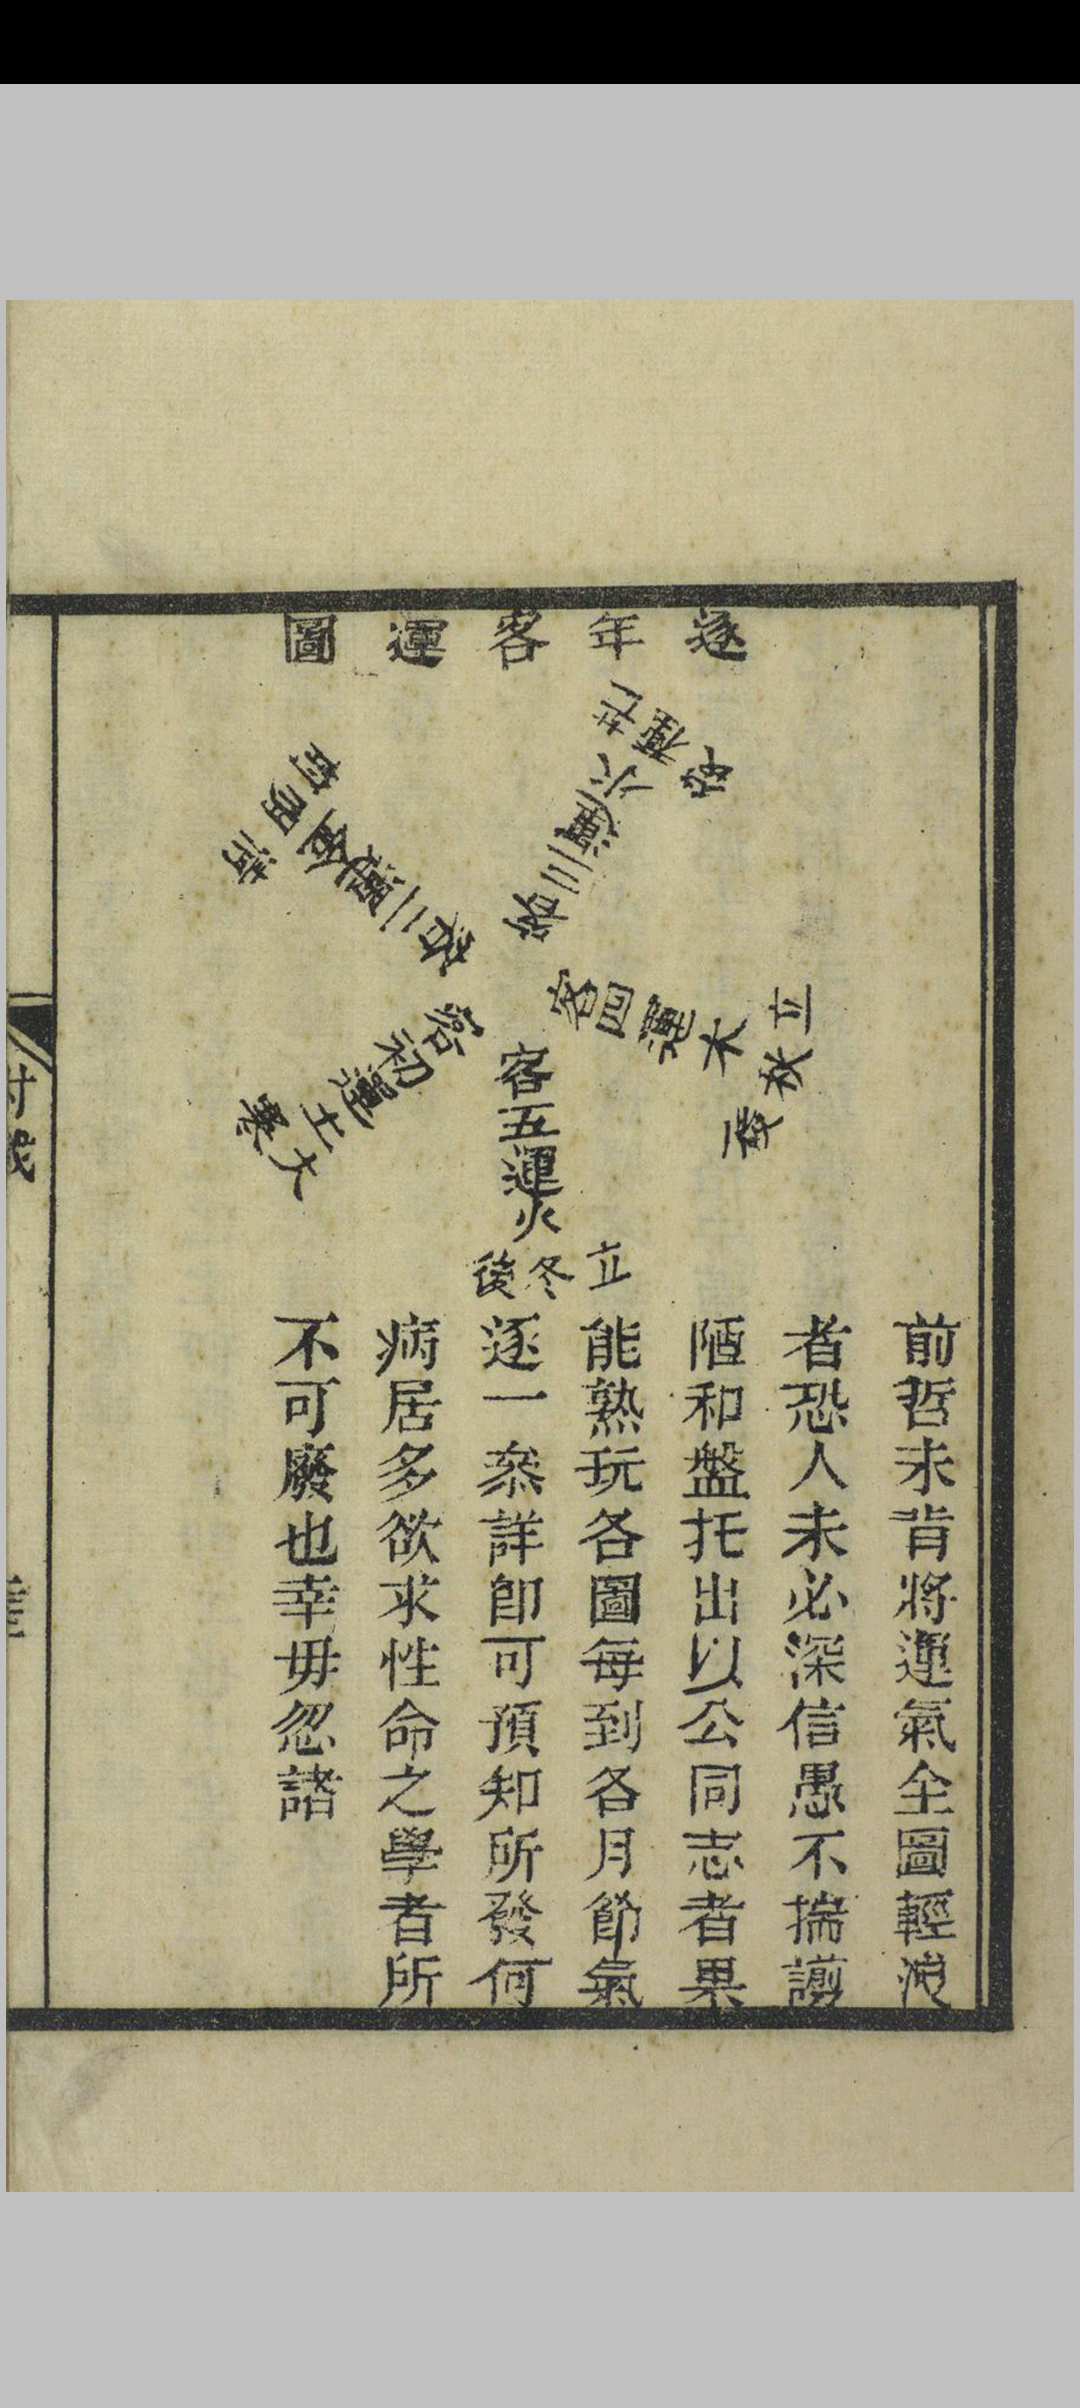 逐年客運圖
大寒
客初運土
清明前
客二運金
芒種後
客三運水
客四運木
立秋
立冬後
客五運火
前哲未肯將運氣全圖輕洩
者恐人未必深信愚不揣譾
陋和盤托出以公同志者果
能熟玩各圖每到各月節氣
逐一叅詳卽可預知所發何
病居多欲求性命之學者所
不可廢也幸毋忽諸